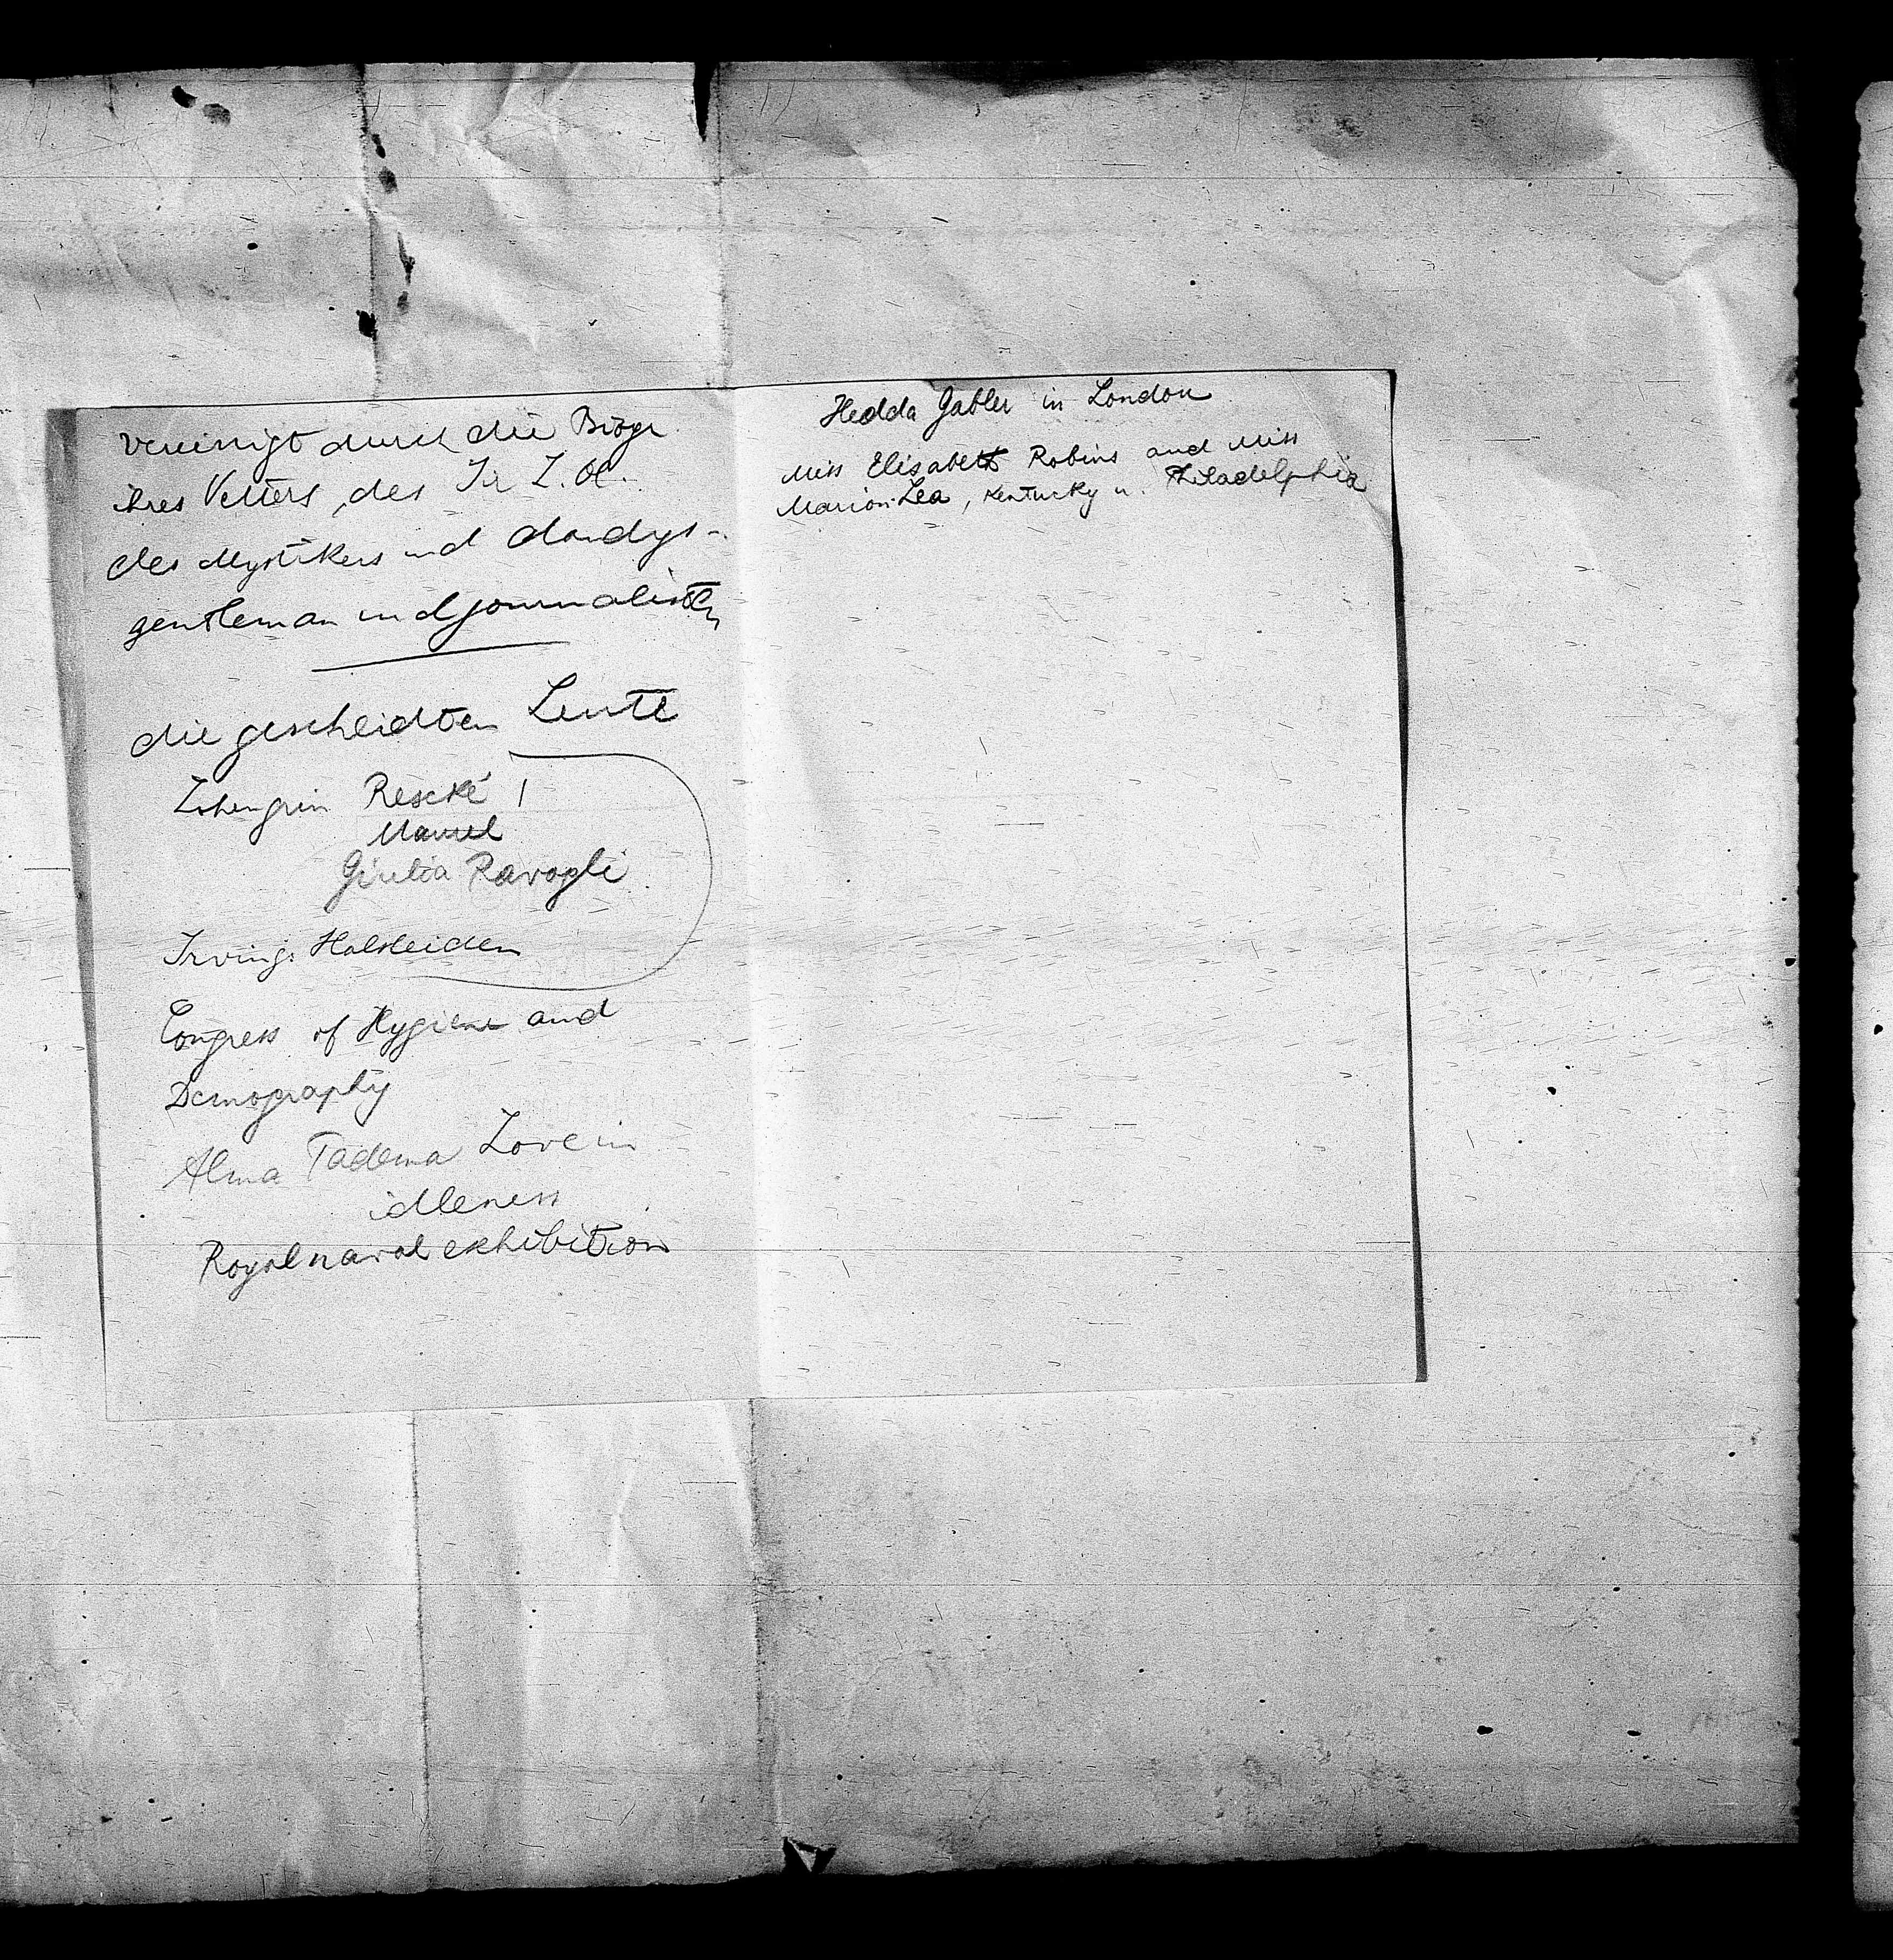 vereinigt durch die Biogr
ihres Vetters, des Sir L. O.
des Mystikers und dandys-
gentleman und journalisten
die gescheidten Leute
Lohengrin Rescké !
Maurel
Giulia Ravogli
Irvings Halsleiden
Congress of Hygiene and
Demography
Alma Tadema Love in
idleness
Royal naval exhibition
Hedda Gabler in London
Miss Elisabeth Robins and Miss
Marion Lea, Kentucky u. Philadelphia